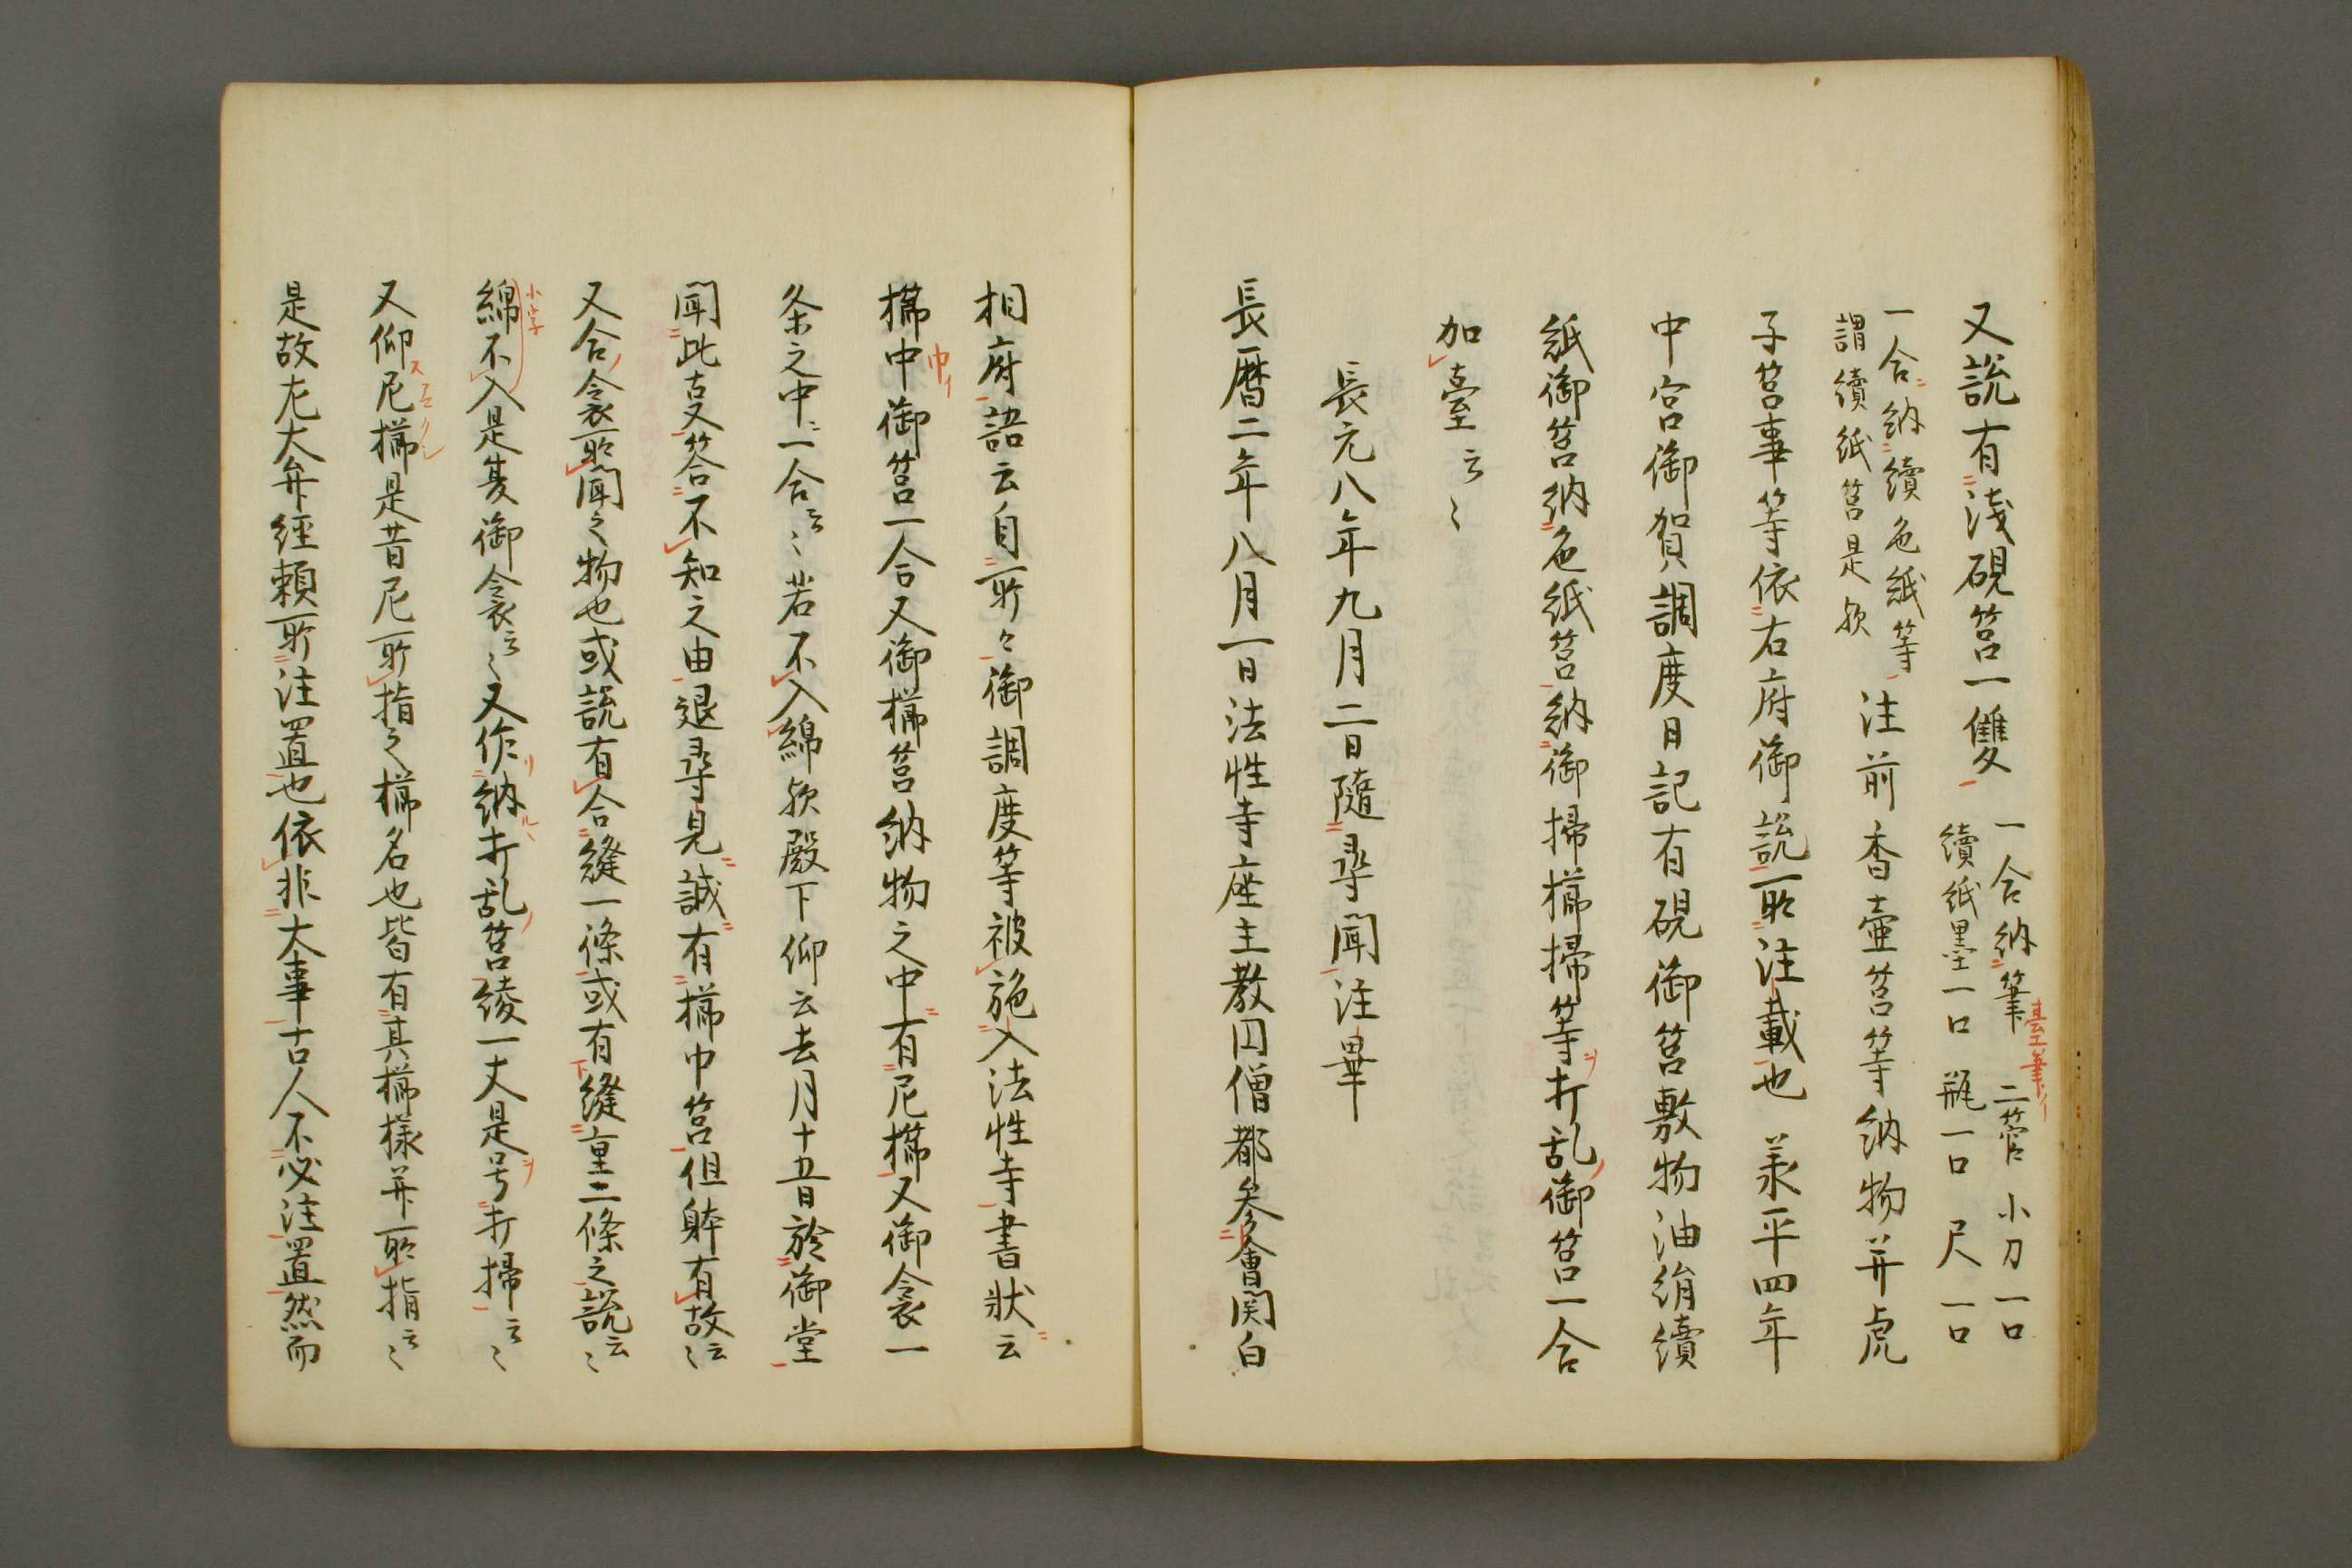 又説有淺硯筥一雙
一合納筆二管 小刀一口
續紙墨一口 瓶一口 尺一口
臺筆イ
一合納續色紙等
謂續紙筥是欤
注前香壷筥等納物并虎
子筥事等依右府御説所注載也 羕平四年
中宮御賀調度日記有硯御筥敷物油絹續
紙御筥納色紙筥納御掃櫛掃等打乱御筥一合
加臺云〻
長元八年九月二日隨尋聞注畢
長暦二年八月一日法性寺座主教円僧都参會関白
相府語云自所々御調度等被施入法性寺書状云
櫛中御筥一合又御櫛筥納物之中有尼櫛又御衾一
巾イ
条之中一合云〻若不入綿欤殿下仰云去月十五日於御堂
聞此古又答不知之由退尋見誠有櫛巾筥但躰有故云〻
又合衾所聞之物也或説有合縫一條或有縫重二條之説云〻
小字
綿不入是夏御衾云〻又作納打乱筥綾一丈是号打掃云〻
又仰尼櫛是昔尼所指之櫛名也皆有其櫛様并所指云〻
是故左大弁經頼所注置也依非大事古人不必注置然而